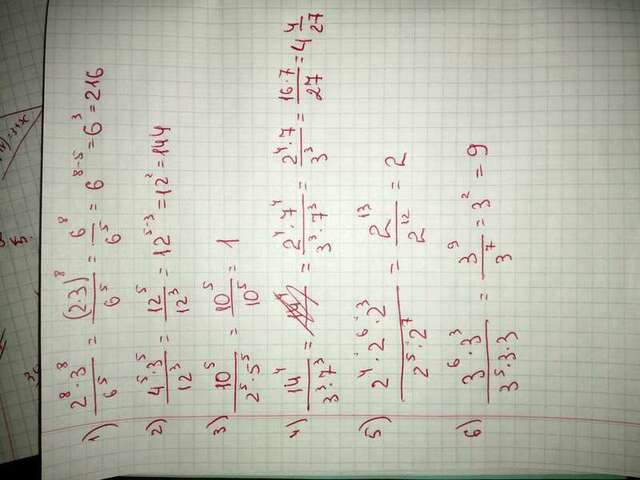 1) 2⁸·3⁸/6⁵ = (2·3)⁸/6⁵ = 6⁸/6⁵ = 6⁸⁻⁵ = 6³ = 216
2) 4⁵·3⁵/12³ = 12⁵/12³ = 12⁵⁻³ = 12² = 144
3) 10⁵/2⁵·5⁵ = 10⁵/10⁵ = 1
4) 14⁴/3³·7³ = = 2⁴·7⁴/3³·7³ = 2⁴·7/3³ = 16·7/27 = 4 4/27
5) 2⁴·2⁶·2³/2⁵·2⁷ = 2¹³/2¹² = 2
6) 3⁶·3³/3⁵·3·3 = 3⁹/3⁷ = 3² = 9